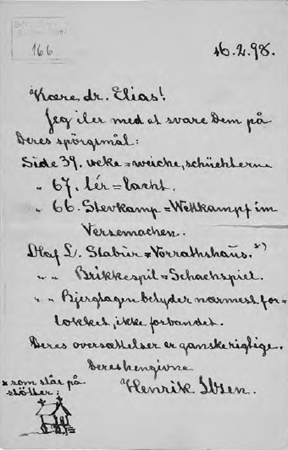 166
16.2.98.
Kære, dr. Elias!
Jeg iler med at svare Dem på
Deres spörgsmål:
Side 39. veke = weiche, schüchterne
" 67. lér = lacht.
" 66. Stevkamp = Wettkampf im
Versemachen.
Olaf L. Stabur = Vorrathshaus. *)
" " Brikkespil = Schachspiel.
" " Bjergtagen betyder nærmest for-
lokket, ikke forbandet.
Deres oversættelser er ganske rigtige.
Deres hengivne
Henrik Ibsen.
* som står på
stötter: